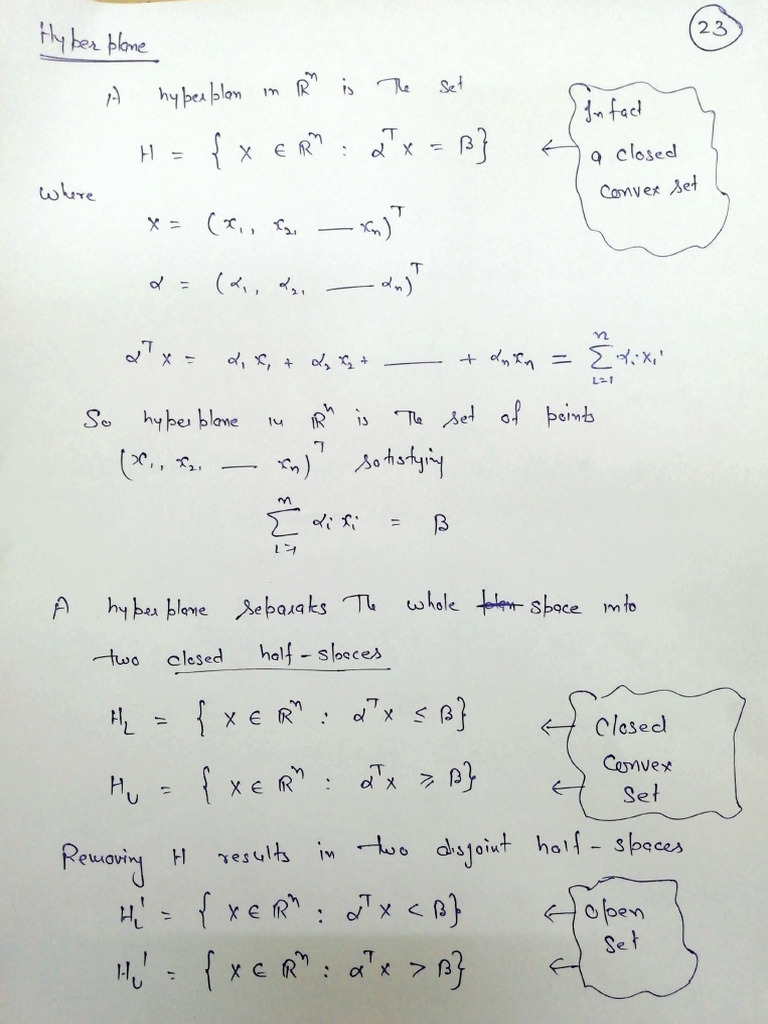 Hyperplane
23
A hyperplan in ℝⁿ is The set
H = { X ∈ ℝⁿ : αᵀ X = β}
←
In fact
a closed
convex set
where
X = (x₁, x₂, — xₙ)ᵀ
α = (α₁, α₂, — αₙ)ᵀ
αᵀ X = α₁ x₁ + α₂ x₂ + —— + αₙ xₙ = ∑ⁿᵢ₌₁ αᵢ xᵢ
So hyperplane in ℝⁿ is The set of points
(x₁, x₂, — xₙ)ᵀ satisfying
∑ⁿᵢ₌₁ αᵢ xᵢ = β
A hyperplane separates The whole space into
two closed half-spaces
H_L = { X ∈ ℝⁿ : αᵀ X ≤ β}
H_U = { X ∈ ℝⁿ : αᵀ X ≥ β}
← Closed
Convex
← Set
Removing H results in two disjoint half-spaces
H_L' = { X ∈ ℝⁿ : αᵀ X < β}
H_U' = { X ∈ ℝⁿ : αᵀ X > β}
← Open
Set
←